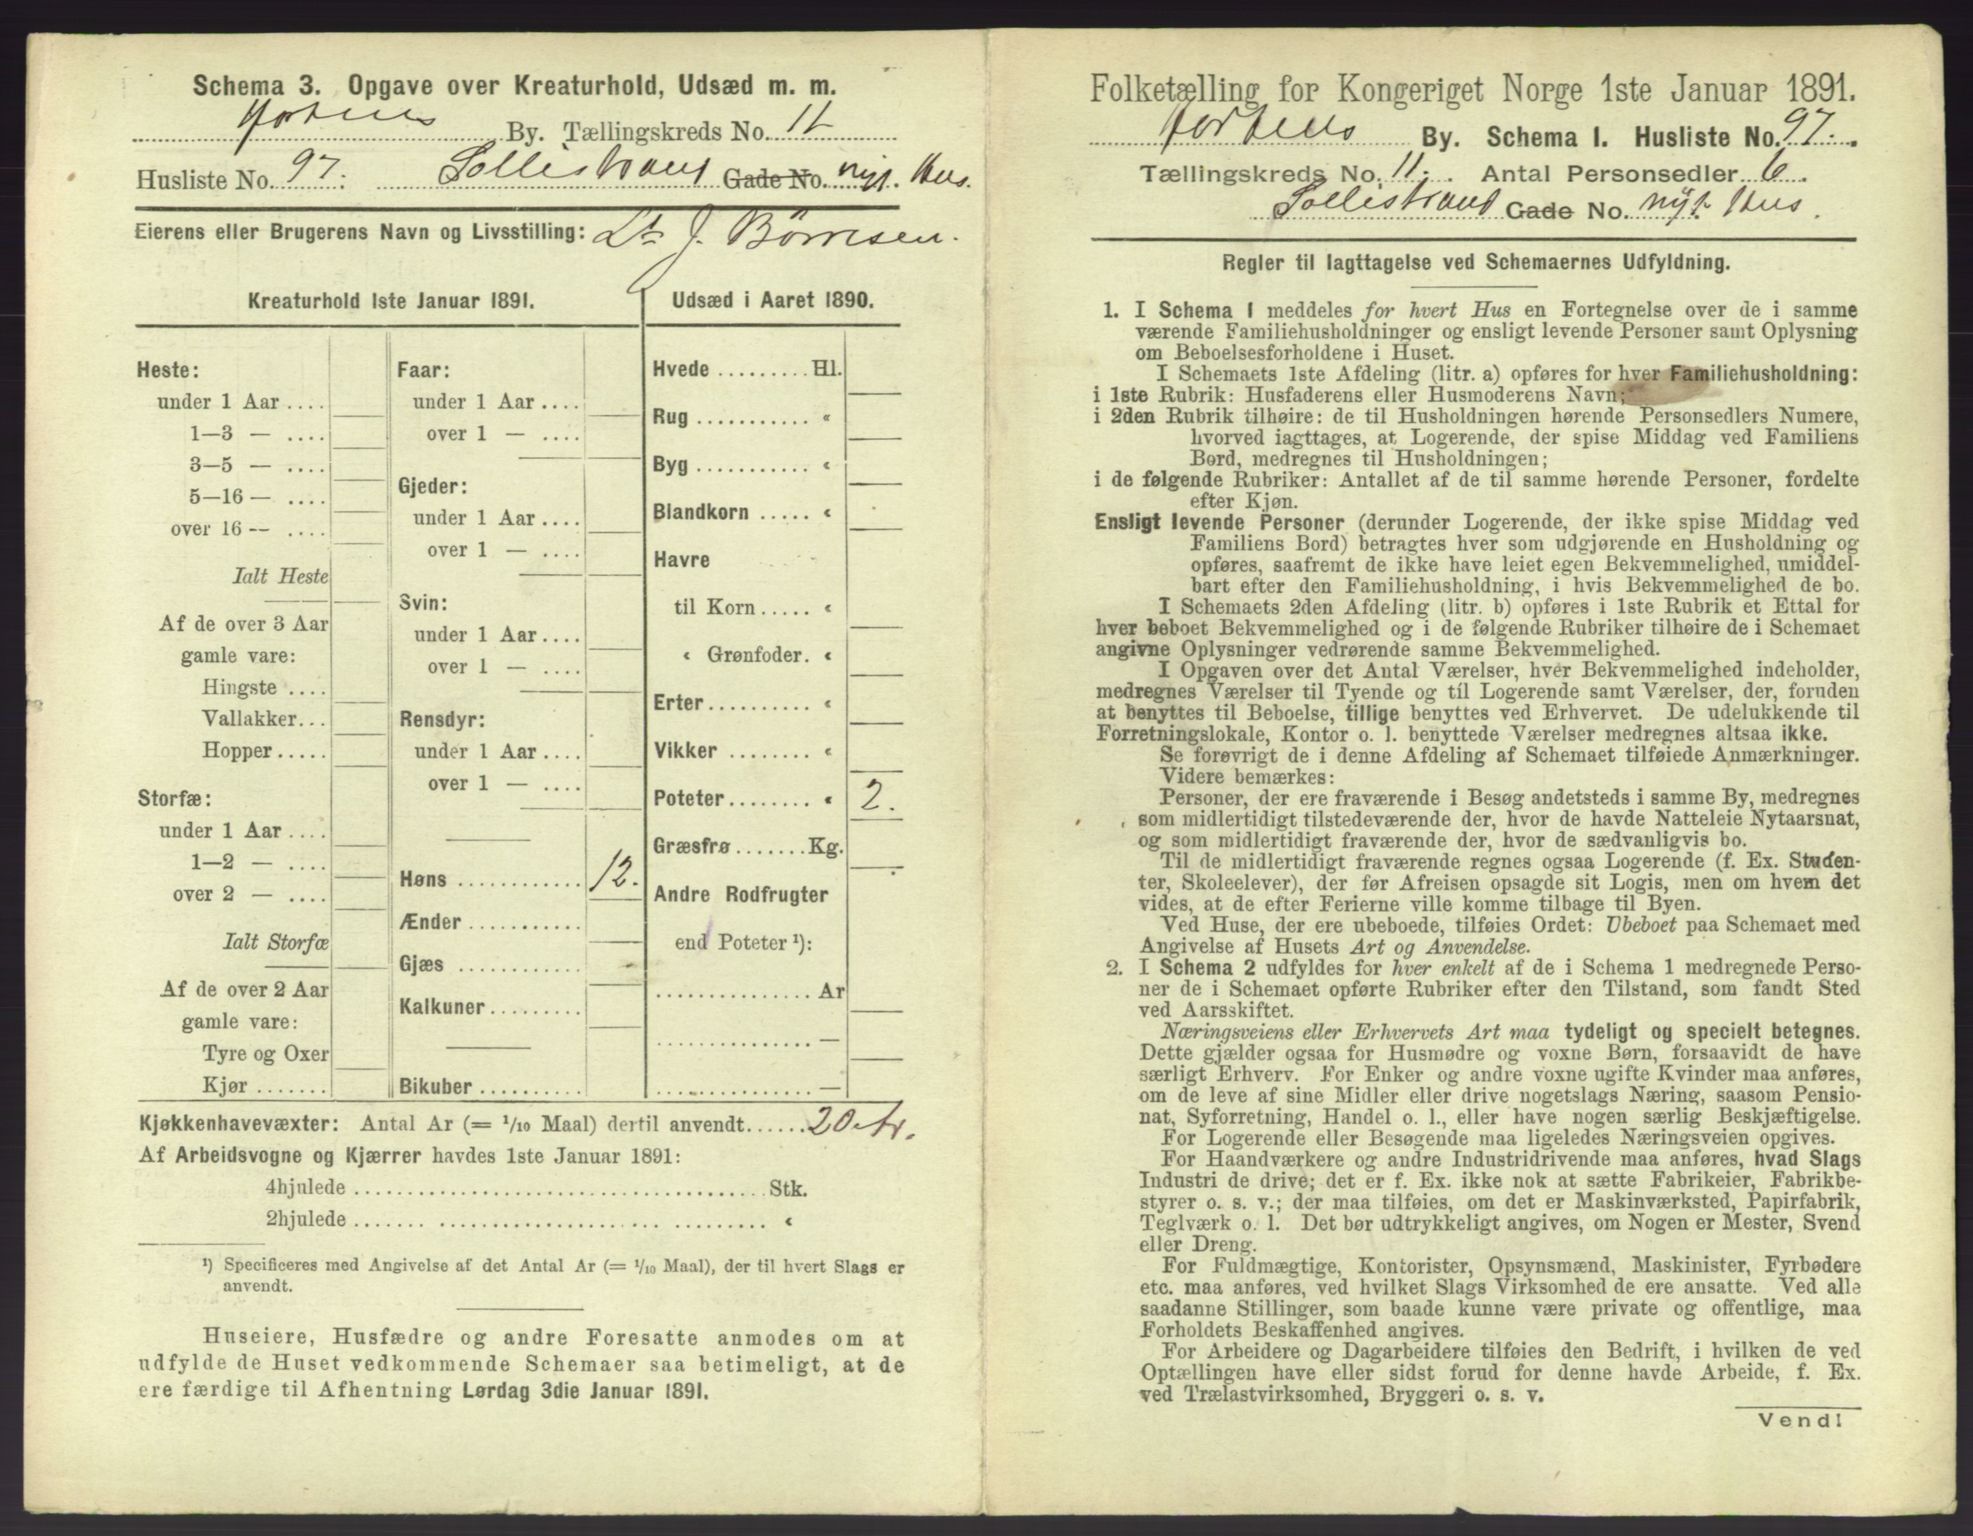 Schema 3. Opgave over Kreaturhold, Udsæd m. m.
Hortens By. Tællingskreds No. 11
Husliste No. 97. Sollistrand Gade No. nyt. Hus.
Eierens eller Brugerens Navn og Livsstilling: Lt J. Børresen.
Kreaturhold 1ste Januar 1891.
Heste:
under 1 Aar ....
1—3 — ....
3—5 — ....
5—16 — ....
over 16 — ....
Ialt Heste
Af de over 3 Aar
gamle vare:
Hingste ....
Vallakker...
Hopper.....
Storfæ:
under 1 Aar ....
1—2 — ....
over 2 — ....
Ialt Storfæ
Af de over 2 Aar
gamle vare:
Tyre og Oxer
Kjør .......
Faar:
under 1 Aar ....
over 1 — ....
Gjeder:
under 1 Aar ....
over 1 — ....
Svin:
under 1 Aar ....
over 1 — ....
Rensdyr:
under 1 Aar ....
over 1 — ....
Høns ............ 12.
Ænder ..........
Gjæs ...........
Kalkuner.........
Bikuber .........
Udsæd i Aaret 1890.
Hvede .........Hl.
Rug ........... «
Byg ........... «
Blandkorn ..... «
Havre
til Korn ..... «
« Grønfoder. «
Erter.......... «
Vikker ........ «
Poteter........ « 2.
Græsfrø .......Kg.
Andre Rodfrugter
end Poteter ¹):
............... Ar
............... —
............... —
Kjøkkenhavevæxter: Antal Ar (= 1/10 Maal) dertil anvendt...... 20 Ar.
Af Arbeidsvogne og Kjærrer havdes 1ste Januar 1891:
4hjulede ........................................ Stk.
2hjulede ........................................ «
¹) Specificeres med Angivelse af det Antal Ar (= 1/10 Maal), der til hvert Slags er
anvendt.
Huseiere, Husfædre og andre Foresatte anmodes om at
udfylde de Huset vedkommende Schemaer saa betimeligt, at de
ere færdige til Afhentning Lørdag 3die Januar 1891.
Folketælling for Kongeriget Norge 1ste Januar 1891.
Hortens By. Schema I. Husliste No. 97.
Tællingskreds No. 11. Antal Personsedler 6.
Sollistrand Gade No. nyt Hus.
Regler til Iagttagelse ved Schemaernes Udfyldning.
1. I Schema 1 meddeles for hvert Hus en Fortegnelse over de i samme
værende Familiehusholdninger og ensligt levende Personer samt Oplysning
om Beboelsesforholdene i Huset.
I Schemaets 1ste Afdeling (litr. a) opføres for hver Familiehusholdning:
i 1ste Rubrik: Husfaderens eller Husmoderens Navn;
i 2den Rubrik tilhøire: de til Husholdningen hørende Personsedlers Numere,
hvorved iagttages, at Logerende, der spise Middag ved Familiens
Bord, medregnes til Husholdningen;
i de følgende Rubriker: Antallet af de til samme hørende Personer, fordelte
efter Kjøn.
Ensligt levende Personer (derunder Logerende, der ikke spise Middag ved
Familiens Bord) betragtes hver som udgjørende en Husholdning og
opføres, saafremt de ikke have leiet egen Bekvemmelighed, umiddel-
bart efter den Familiehusholdning, i hvis Bekvemmelighed de bo.
I Schemaets 2den Afdeling (litr. b) opføres i 1ste Rubrik et Ettal for
hver beboet Bekvemmelighed og i de følgende Rubriker tilhøire de i Schemaet
angivne Oplysninger vedrørende samme Bekvemmelighed.
I Opgaven over det Antal Værelser, hver Bekvemmelighed indeholder,
medregnes Værelser til Tyende og til Logerende samt Værelser, der, foruden
at benyttes til Beboelse, tillige benyttes ved Erhvervet. De udelukkende til
Forretningslokale, Kontor o. l. benyttede Værelser medregnes altsaa ikke.
Se forøvrigt de i denne Afdeling af Schemaet tilføiede Anmærkninger.
Videre bemærkes:
Personer, der ere fraværende i Besøg andetsteds i samme By, medregnes
som midlertidigt tilstedeværende der, hvor de havde Natteleie Nytaarsnat,
og som midlertidigt fraværende der, hvor de sædvanligvis bo.
Til de midlertidigt fraværende regnes ogsaa Logerende (f. Ex. Studen-
ter, Skoleelever), der før Afreisen opsagde sit Logis, men om hvem det
vides, at de efter Ferierne ville komme tilbage til Byen.
Ved Huse, der ere ubeboede, tilføies Ordet: Ubeboet paa Schemaet med
Angivelse af Husets Art og Anvendelse.
2. I Schema 2 udfyldes for hver enkelt af de i Schema 1 medregnede Perso-
ner de i Schemaet opførte Rubriker efter den Tilstand, som fandt Sted
ved Aarsskiftet.
Næringsveiens eller Erhvervets Art maa tydeligt og specielt betegnes.
Dette gjælder ogsaa for Husmødre og voxne Børn, forsaavidt de have
særligt Erhverv. For Enker og andre voxne ugifte Kvinder maa anføres,
om de leve af sine Midler eller drive nogetslags Næring, saasom Pensio-
nat, Syforretning, Handel o. l., eller have nogen særlig Beskjæftigelse.
For Logerende eller Besøgende maa ligeledes Næringsveien opgives.
For Haandværkere og andre Industridrivende maa anføres, hvad Slags
Industri de drive; det er f. Ex. ikke nok at sætte Fabrikeier, Fabrikbe-
styrer o. s. v.; der maa tilføies, om det er Maskinværksted, Papirfabrik,
Teglværk o. l. Det bør udtrykkeligt angives, om Nogen er Mester, Svend
eller Dreng.
For Fuldmægtige, Kontorister, Opsynsmænd, Maskinister, Fyrbødere
etc. maa anføres, ved hvilket Slags Virksomhed de ere ansatte. Ved alle
saadanne Stillinger, som baade kunne være private og offentlige, maa
Forholdets Beskaffenhed angives.
For Arbeidere og Dagarbeidere tilføies den Bedrift, i hvilken de ved
Optællingen have eller sidst forud for denne havde Arbeide, f. Ex.
ved Trælastvirksomhed, Bryggeri o. s. v.
Vend!